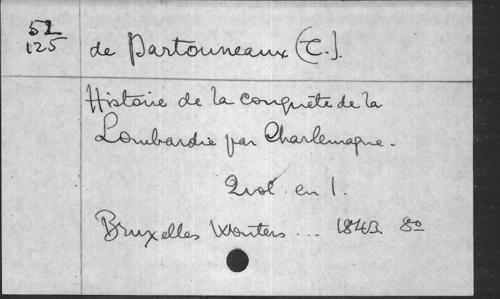 52
125
de Partouneaux (C.).
Histoire de la conquête de la
Lombardie par Charlemagne.
2 vol. en 1.
Bruxelles Wouters ... 1843 8º